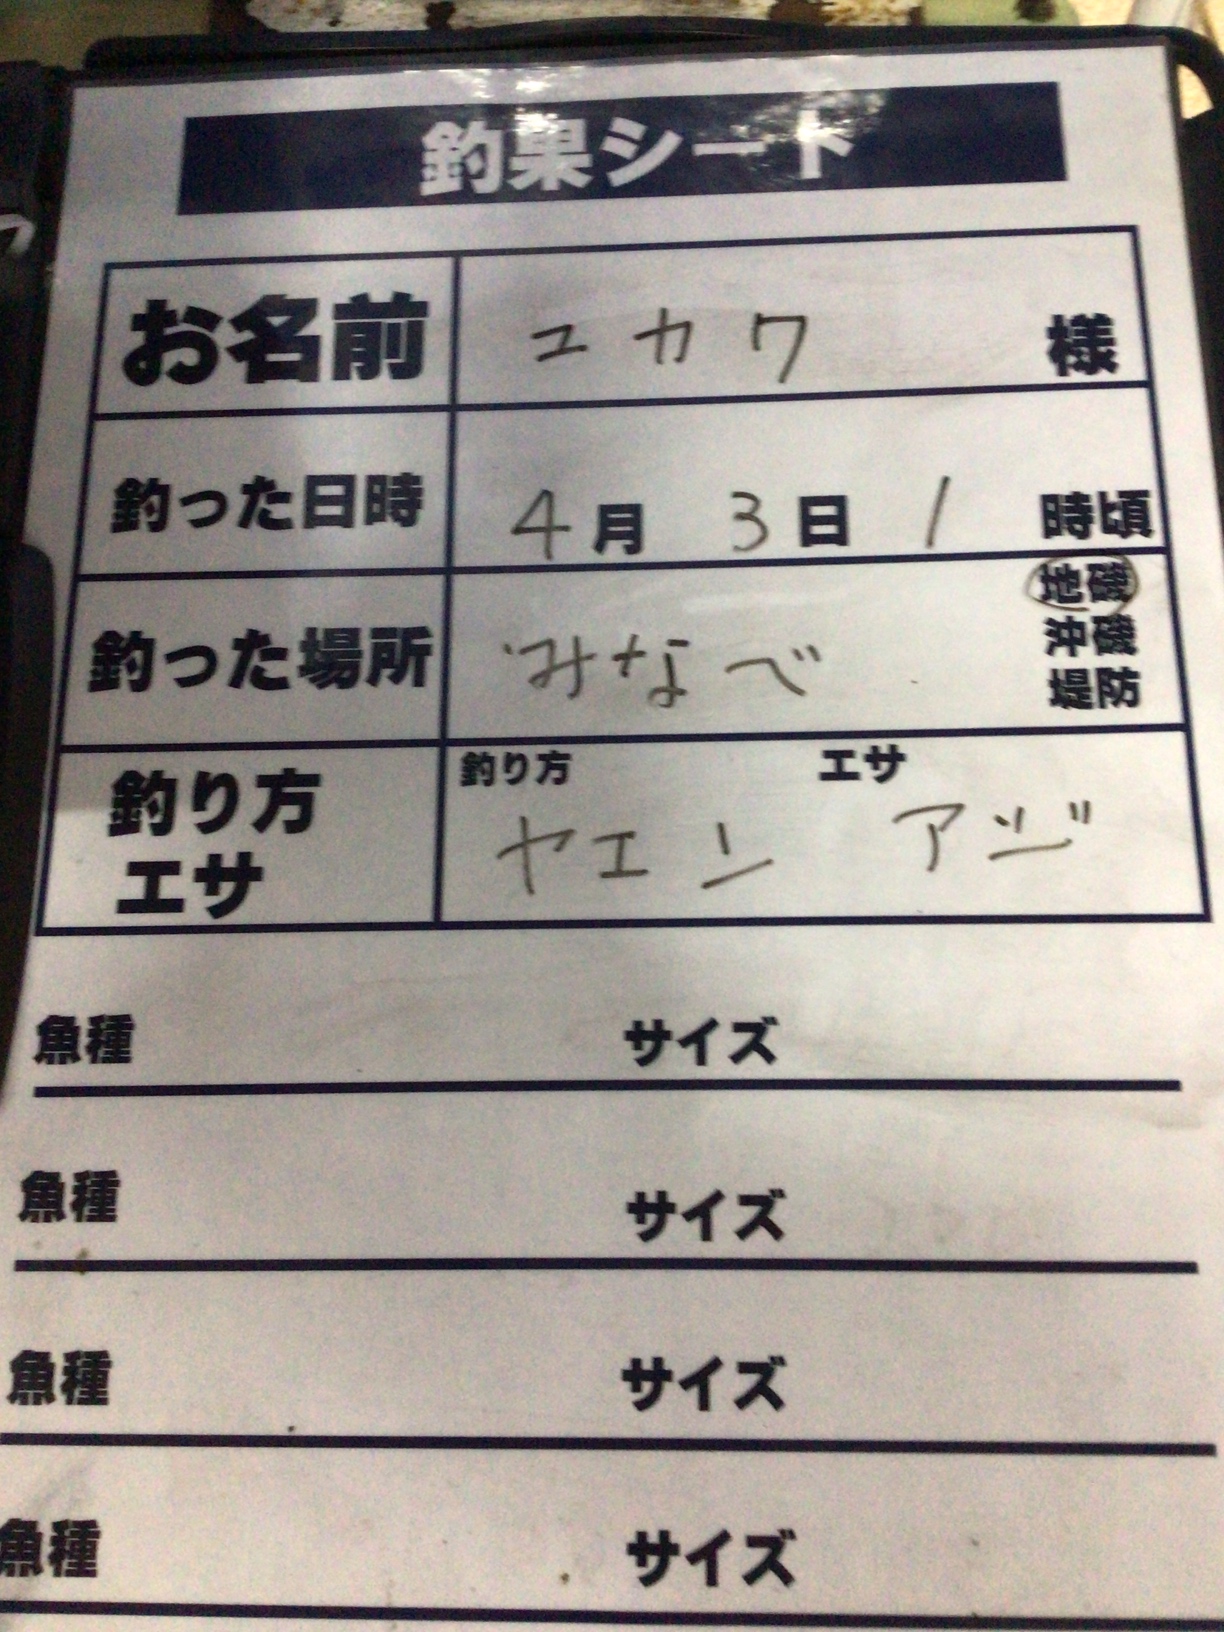 釣果シート
お名前 ユカワ 様
釣った日時 4月 3日 1 時頃
釣った場所 みなべ 地磯
沖磯
堤防
釣り方 エサ
釣り方
エサ
ヤエン アジ
魚種 サイズ
魚種 サイズ
魚種 サイズ
魚種 サイズ